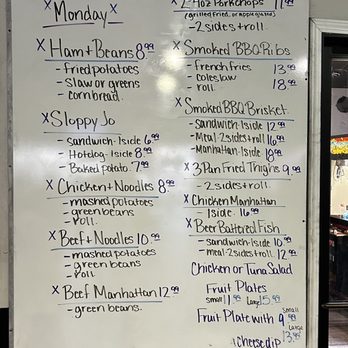 Monday
x Ham + Beans 8.99
- fried potatoes
- slaw or greens
- cornbread.
x Sloppy Jo
- sandwich · 1side 6.99
- Hotdog · 1side 8.99
- Baked potato. 7.99
x Chicken + Noodles 8.99
- mashed potatoes
- green beans
- roll.
x Beef + Noodles 10.99
- mashed potatoes
- green beans
- roll
x Beef Manhattan 12.99
- green beans.
x 2-4oz Porkchops 11.99
(grilled, fried, or apple glazed)
- 2 sides + roll.
x Smoked BBQ Ribs
- french fries 13.99
- coleslaw 18.99
- roll
x Smoked BBQ Brisket
- sandwich · 1side 12.99
- Meal - 2sides + roll 16.99
- Manhattan · 1side 18.99
x 3 Pan Fried Thighs 9.99
- 2 sides + roll.
x Chicken Manhattan
1side. 16.99
x Beer Battered Fish
- sandwich - 1side 10.99
- meal - 2 sides + roll 12.99
Chicken or Tuna Salad
Fruit Plates
small 11.99 Large 15.99
Fruit Plate with small 9.99
Large 13.99
cheese dip